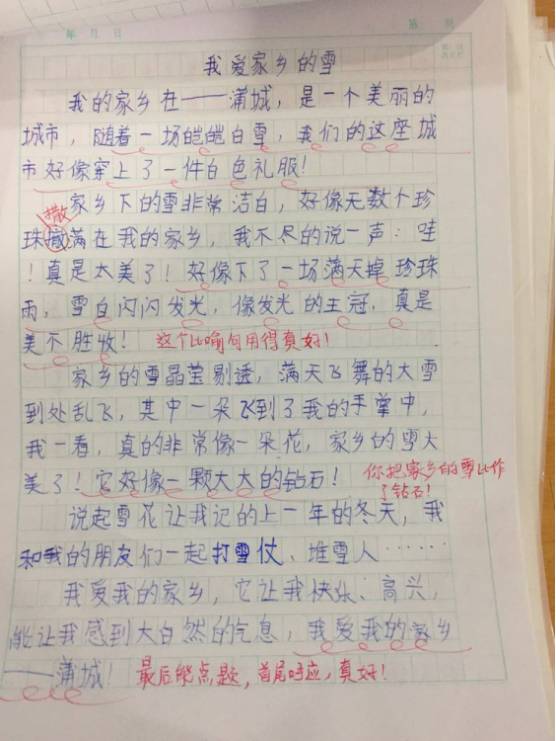 年 月 日
我爱家乡的雪
我的家乡在——蒲城，是一个美丽的
城市，随着一场皑皑白雪，我们的这座城
市好像穿上了一件白色礼服！
家乡下的雪非常洁白，好像无数个珍
撒
珠满在我的家乡，我不尽的说一声：哇
！真是太美了！好像下了一场满天掉珍珠
雨，雪白闪闪发光，像发光的王冠，真是
美不胜收！ 这个比喻句用得真好！
家乡的雪晶莹剔透，满天飞舞的大雪
到处乱飞，其中一朵飞到了我的手掌中，
我一看，真的非常像一朵花，家乡的雪太
美了！它好像一颗大大的钻石！ 你把家乡的雪比作
了钻石！
说起雪花让我记的上一年的冬天，我
和我的朋友们一起打雪仗、堆雪人……
我爱我的家乡，它让我快乐、高兴，
能让我感到大自然的气息，我爱我的家乡
——蒲城！ 最后能点题，首尾呼应，真好！